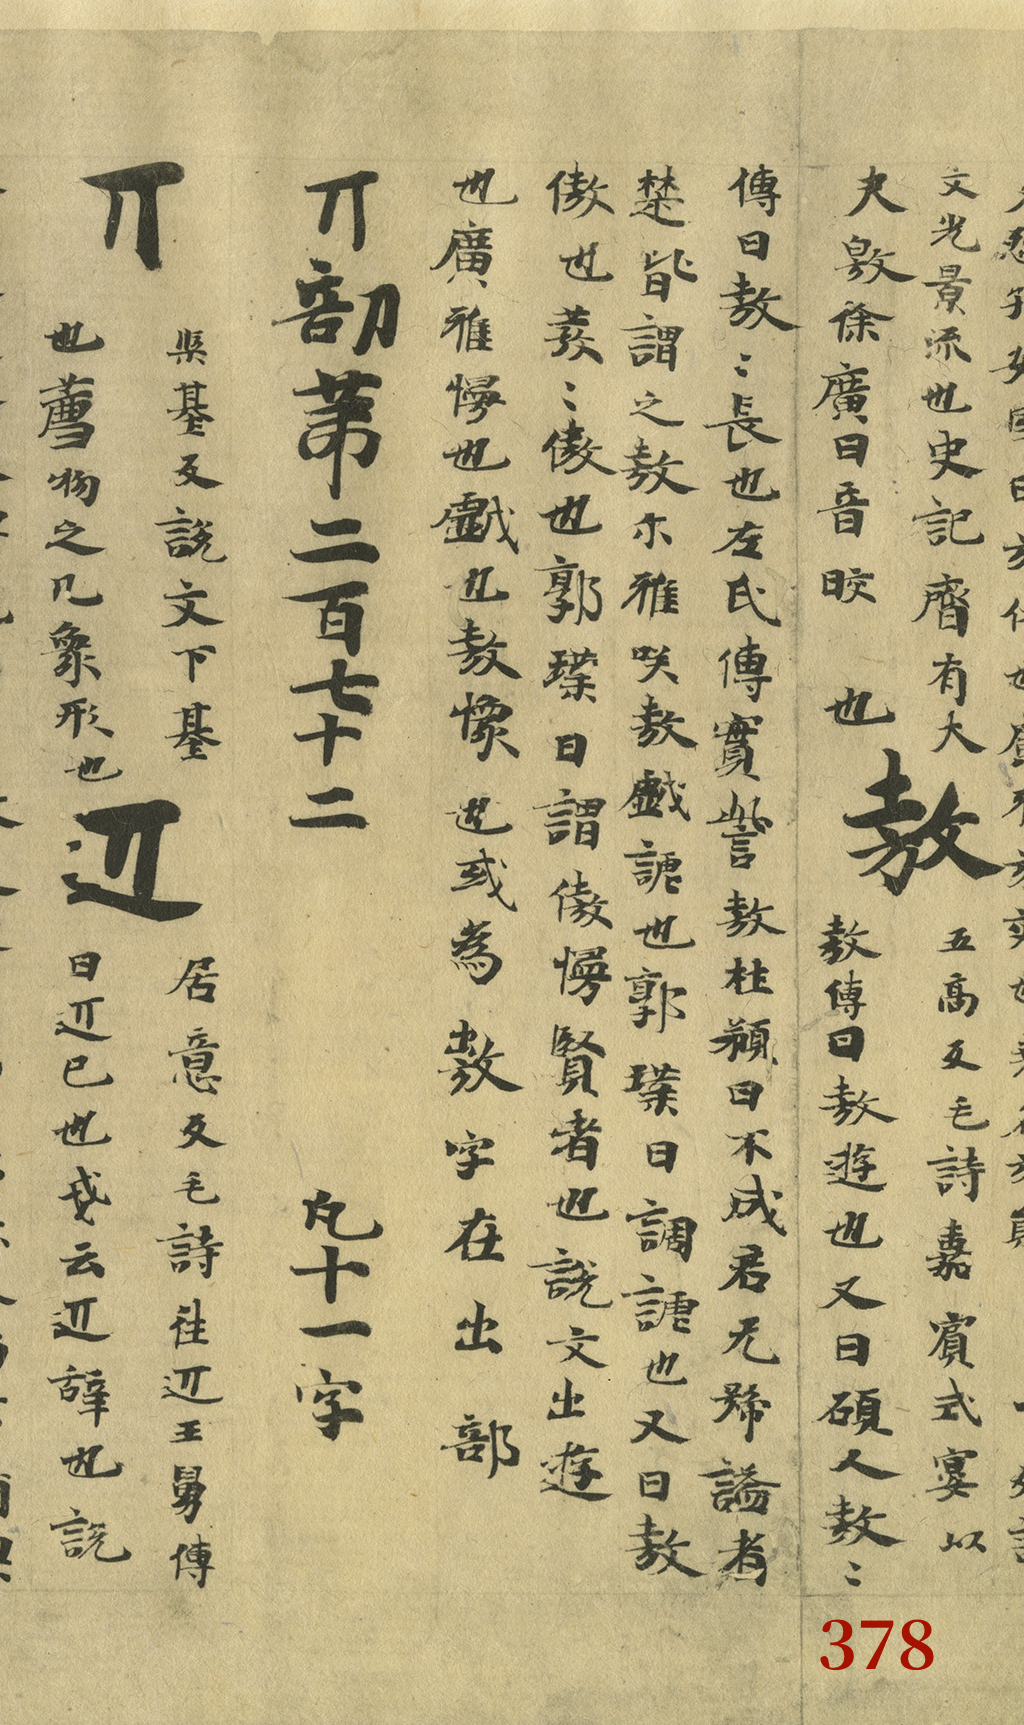 文光景流也史記齊有大
夫敫徐廣曰音晈　也
敖
五高反毛詩嘉賔式宴以
敖傳曰敖遊也又曰碩人敖〻
傳曰敖〻長也左氏傳實訾敖杜預曰不成君无號謚者
楚皆謂之敖尒雅咲敖戲謔也郭璞曰調謔也又曰敖
傲也敖〻傲也郭璞曰謂傲慢賢者也說文出遊
也廣雅慢也戲也敖㦬也或為𢾕字在出部
丌部苐二百七十二　凡十一字
丌
渠基反說文下基
也薦物之几象形也
䢋
居意反毛詩往䢋王舅傳
曰䢋巳也戔云䢋辝也說
378